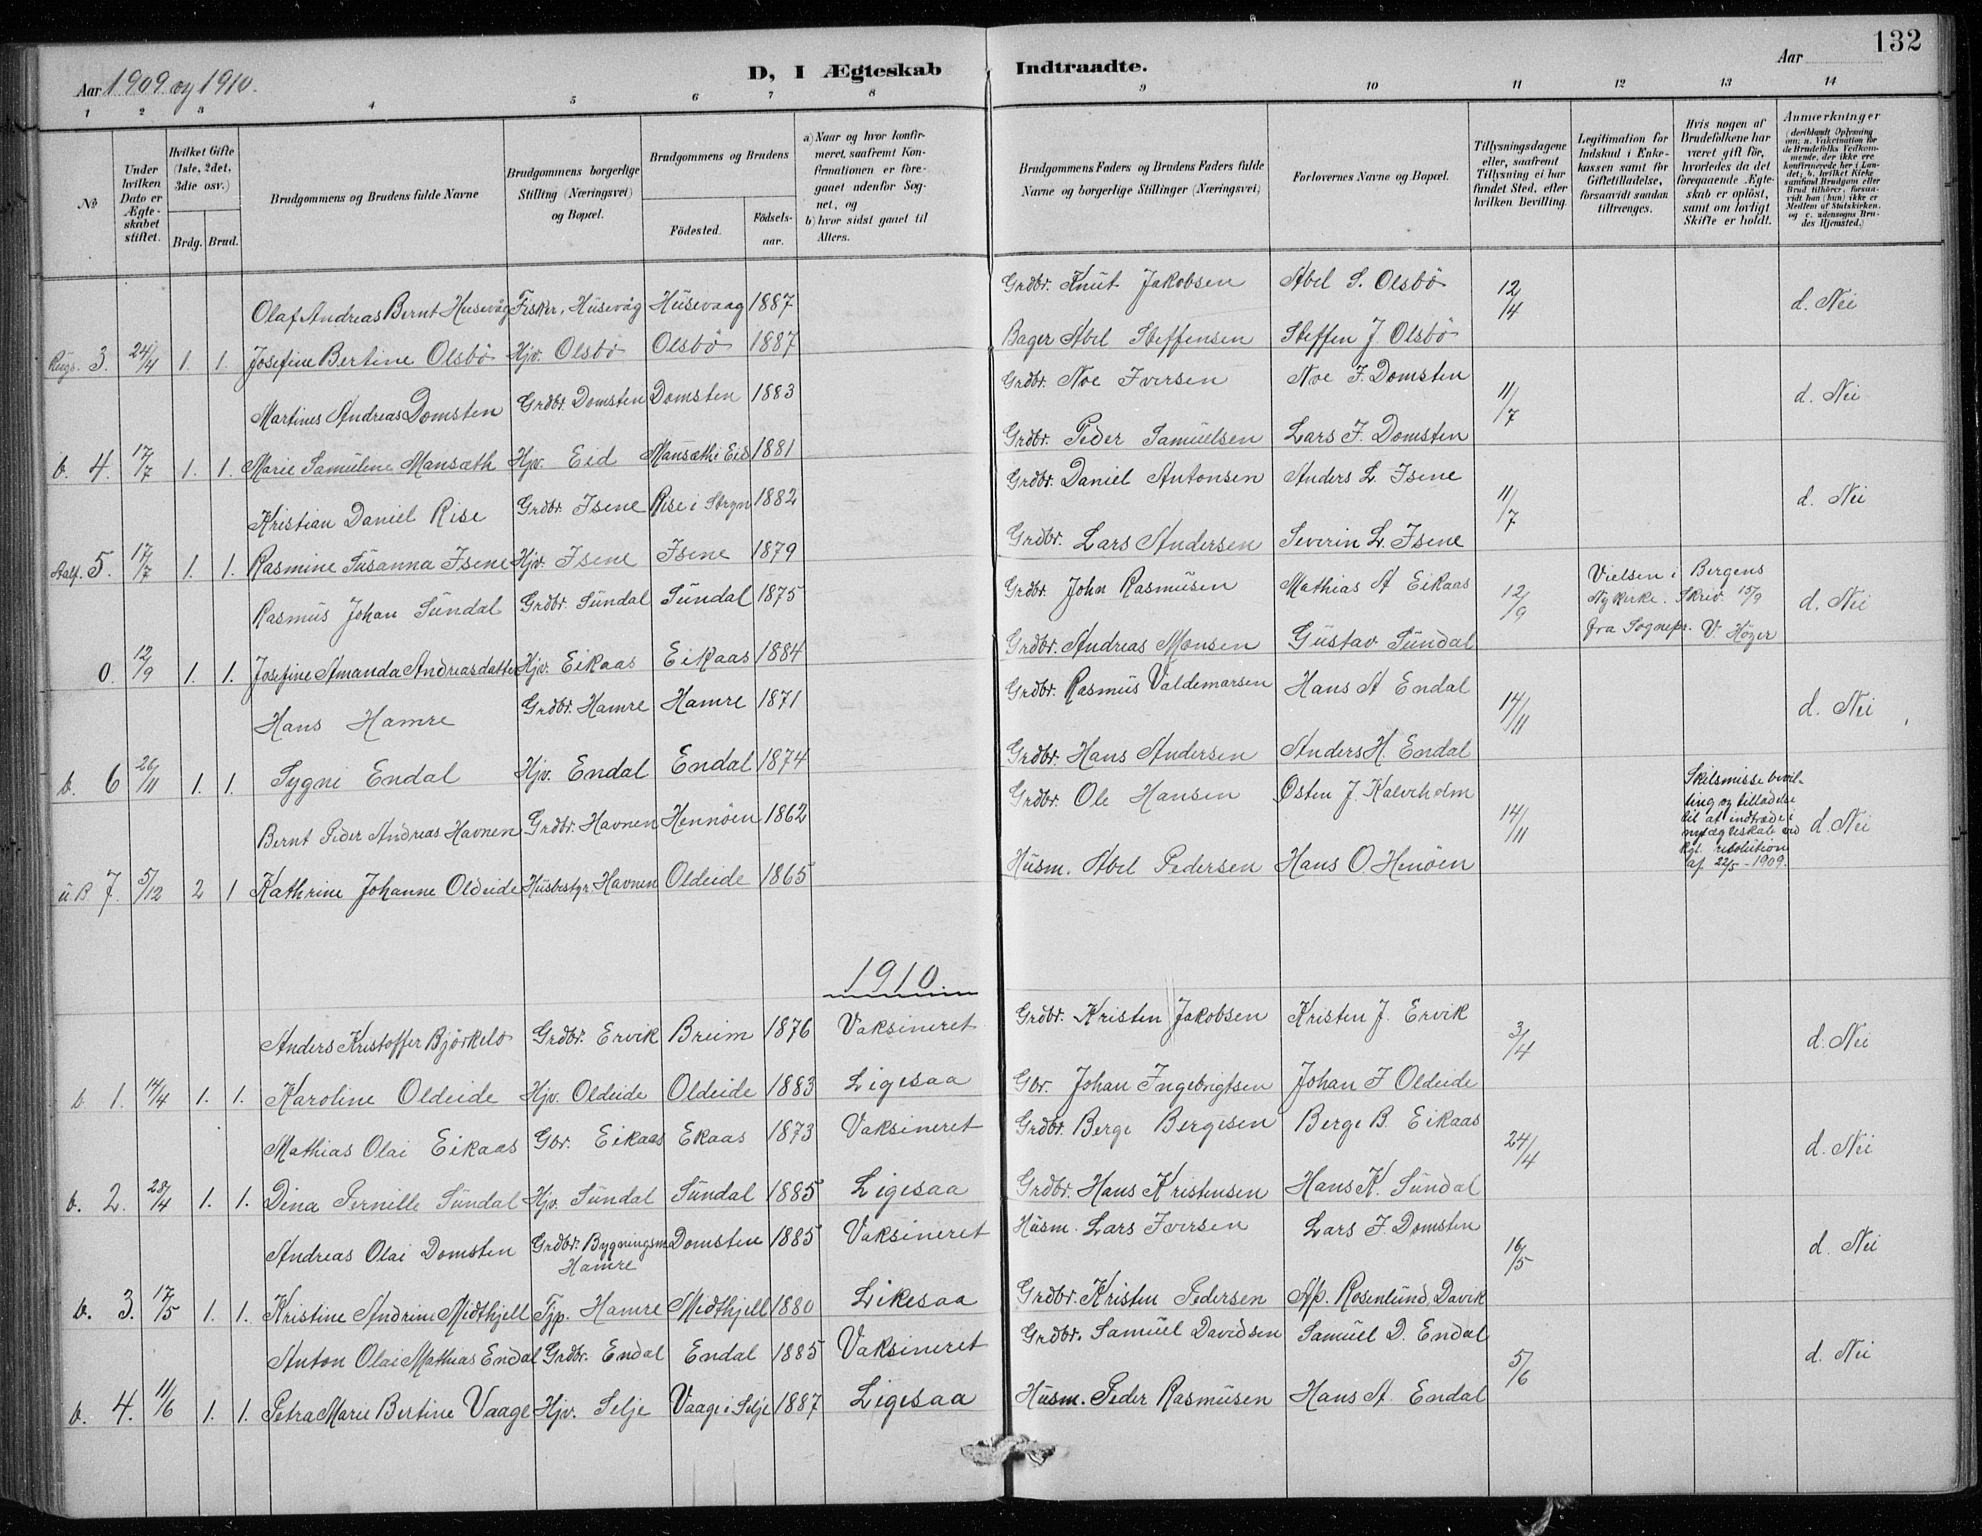 132
Aar 1909 og 1910.
D, I Ægteskab Indtraadte.
Aar
1 2 3 4 5 6 7 8 9 10 11 12 13 14
No
Under hvilken Dato er Ægteskabet stiftet.
Hvilket Gifte (1ste, 2det, 3die osv.)
Brdg. Brud.
Brudgommens og Brudens fulde Navne
Brudgommens borgerlige Stilling (Næringsvei) og Bopæl.
Brudgommens og Brudens
Födested. Födselsaar.
a) Naar og hvor konfirmeret, saafremt Konfirmationen er foregaaet udenfor Sognet, og
b) hvor sidst gaaet til Alters.
Brudgommens Faders og Brudens Faders fulde Navne og borgerlige Stillinger (Næringsvei)
Forlovernes Navne og Bopæl.
Tillysningsdagene eller, saafremt Tillysning ei har fundet Sted, efter hvilken Bevilling.
Legitimation for Indskud i Enkekassen samt for Giftetilladelse, forsaavidt saadan tiltrænges.
Hvis nogen af Brudefolkene har været gift för, hvorledes da det foregaaende Ægteskab er oplöst, samt om lovligt Skifte er holdt.
Anmærkninger (deriblandt Oplysning om: a. Vakcination for de Brudefolks Vedkommende, der ikke ere konfirmerede her i Landet; b. hvilket Kirkesamfund Brudgom eller Brud tilhörer, forsaavidt han (hun) ikke er Medlem af Statskirken, og c. udensogns Brudes Hjemsted.)
Olaf Andreas Bernt Husevåg Fisker, Husevåg Husevaag 1887 Grdbr. Knut Jakobsen Abel S. Olsbö 12/4 d. Nei
Rugs. 3. 24/4 1. 1. Josefine Bertine Olsbö Hjv. Olsbö Olsbö 1887 Bager Abel Steffensen Steffen J Olsbö
Martinus Andreas Domsten Grdbr. Domsten Domsten 1883 Grdbr. Noe Iversen Noe I. Domsten 11/7 d. Nei
b. 4. 17/7 1. 1. Marie Samuline Mansæth Hjv. Eid Mansæth i Eid 1881 Grdbr. Peder Samuelsen Lars I. Domsten
Kristian Daniel Rise Grdbr. Isene Rise i Stryn 1882 Grdbr. Daniel Antonsen Anders L. Isene 11/7 d. Nei
Aalf. 5. 17/7 1. 1. Rasmine Susanna Isene Hjv. Isene Isene 1879 Grdbr. Lars Andersen Severin L. Isene
Rasmus Johan Sundal Grdbr. Sundal Sundal 1875 Grdbr. John Rasmusen Mathias A Eikaas 12/9 Vielsen i Bergens Nykirke. Skriv. 15/9 fra Sognepr. V. Höger d. Nei
0. 12/9 1. 1. Josefine Amanda Andreasdatter Hjv. Eikaas Eikaas 1884 Grdbr. Andreas Monsen Gustav Sundal
Hans Hamre Grdbr. Hamre Hamre 1871 Grdbr. Rasmus Valdemarsen Hans A Endal 14/11 d. Nei
b. 6 26/11 1. 1. Sygni Endal Hjv. Endal Endal 1874 Grdbr. Hans Andersen Anders H. Endal
Bernt Peder Andreas Havnen Grdbr. Havnen Hennöen 1862 Grdbr. Ole Hansen Östen J. Kalveholm 14/11 Skilsmissebevilling og tilladelse til at indtræde i nyt ægteskab ved Kgl. resolution af 22/5-1909. d. Nei
u.B 7. 5/12 2 1 Kathrine Johanne Oldeide Husbestyr. Havnen Oldeide 1865 Husm. Abel Pedersen Hans O. Henöen
1910.
Anders Kristoffer Björkelo Grdbr. Ervik Breim 1876 Vaksineret Grdbr. Kristen Jakobsen Kristen J. Ervik 3/4 d. Nei
b. 1. 14/4 1. 1. Karoline Oldeide Hjv. Oldeide Oldeide 1883 Ligesaa Gbr. Johan Ingebrigtsen Johan I Oldeide
Mathias Olai Eikaas Gbr. Eikaas Ekaas 1873 Vaksineret Grdbr. Berge Bergesen Berge B. Eikaas 24/4 d. Nei
b. 2. 28/4 1. 1. Dina Pernille Sundal Hjv. Sundal Sundal 1885 Ligesaa Grdbr. Hans Kristensen Hans K. Sundal
Andreas Olai Domsten Grdbr. Bygningsm. Hamre Domsten 1885 Vaksineret Husm. Lars Iversen Lars I. Domsten 16/5 d. Nei
b. 3. 17/5 1. 1. Kristine Andrine Midthjell Tjp. Hamre Midthjell 1880 Likesaa Grdbr. Kristen Pedersen Ap. Rosenlund, Davik
Anton Olai Mathias Endal Grdbr. Endal Endal 1885 Vaksineret Grdbr. Samuel Davidsen Samuel D. Endal 5/6 d. Nei
b. 4. 11/6 1. 1. Petra Marie Bertine Vaage Hjv. Selje Vaage i Selje 1887 Ligesaa Husm. Peder Rasmusen Hans A. Endal